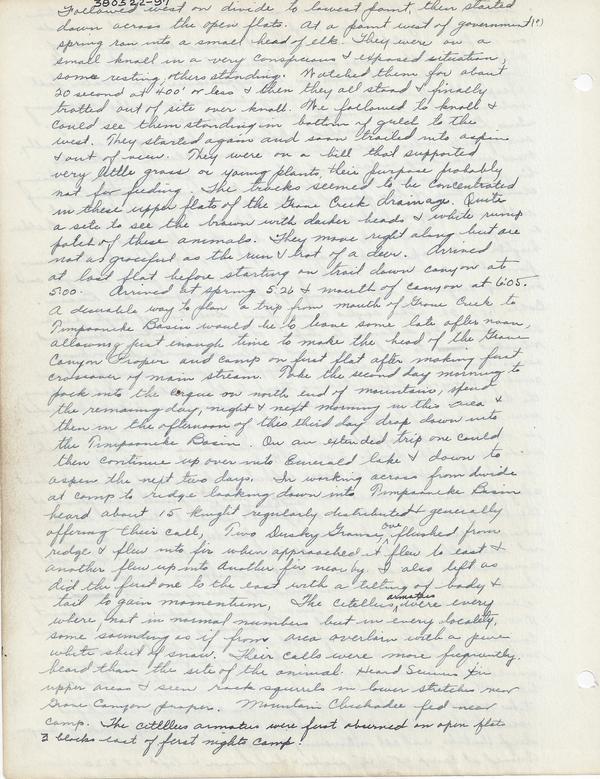 380522-37
Followed west on divide to lowest point, then started
down across the open flats. At a point west of government (?)
spring ran into a small head of elk. They were on a
small knoll in a very conspicuous & exposed situation,
some resting, others standing. Watched them for about
20 second at 400' or less & then they all stood & finally
trotted out of site over knoll. We followed to knoll &
could see them standing in bottom of gulch to the
west. They started again and soon trailed into aspin
& out of view. They were on a hill that supported
very little grass or young plants, their purpose probably
not for feeding. The tracks seemed to be concentrated
in these upper flats of the Grove Creek drainage. Quite
a site to see the brown with darker heads & white rump
patch of these animals. They move right along but are
not as graceful as the run & trot of a deer. Arrived
at last flat before starting on trail down canyon at
5:00. Arrived at spring 5:26 & mouth of canyon at 6:05.
A desirable way to plan a trip from mouth of Grove Creek to
Timpooneke Basin would be to leave some late after noon,
allowing just enough time to make the head of the Grove
Canyon proper and camp on first flat after making first
crossover of main stream. Take the second day morning to
pack into the cirque on north end of mountain, spend
the remaining day, night & next morning in this area &
then in the afternoon of this third day drop down into
the Timpooneke Basin. On an extended trip one could
then continue up over into Emerald lake & down to
aspen the next two days. In working across from divide
at camp to ridge looking down into Timpooneke Basin
heard about 15 knight regularly distributed & generally
offering their call, Two Dusky Grouse, one flushed from
ridge & flew into fir when approached it flew to east &
another flew up into another fir near by. I also left as
did the first one to the east with a tilting of body &
tail to gain momentism, The citellus armatus were every
where, not in normal numbers but in every locality,
some sounding as if from area overlain with a pure
white sheet of snow. Their calls were more frequently
heard than the site of the animal. Heard Sciurus in
upper areas & seen rock squirrels in lower stretches near
Grove Canyon proper. Mountain Chickadee fed near
camp. The citellus armatus were first observed on open flats
3 blocks east of first nights camp.